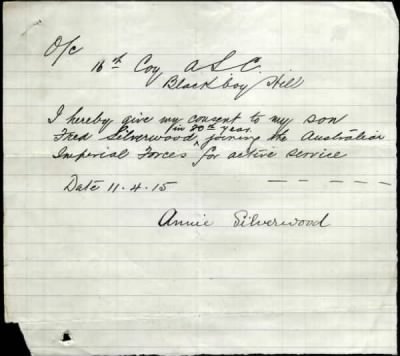 O/c
16th Coy A S C.
Blackboy Hill
I hereby give my consent to my son
Fred Silverwood, in 20th year. joining the Australian
Imperial Forces for active service
Date 11.4.15
Annie Silverwood